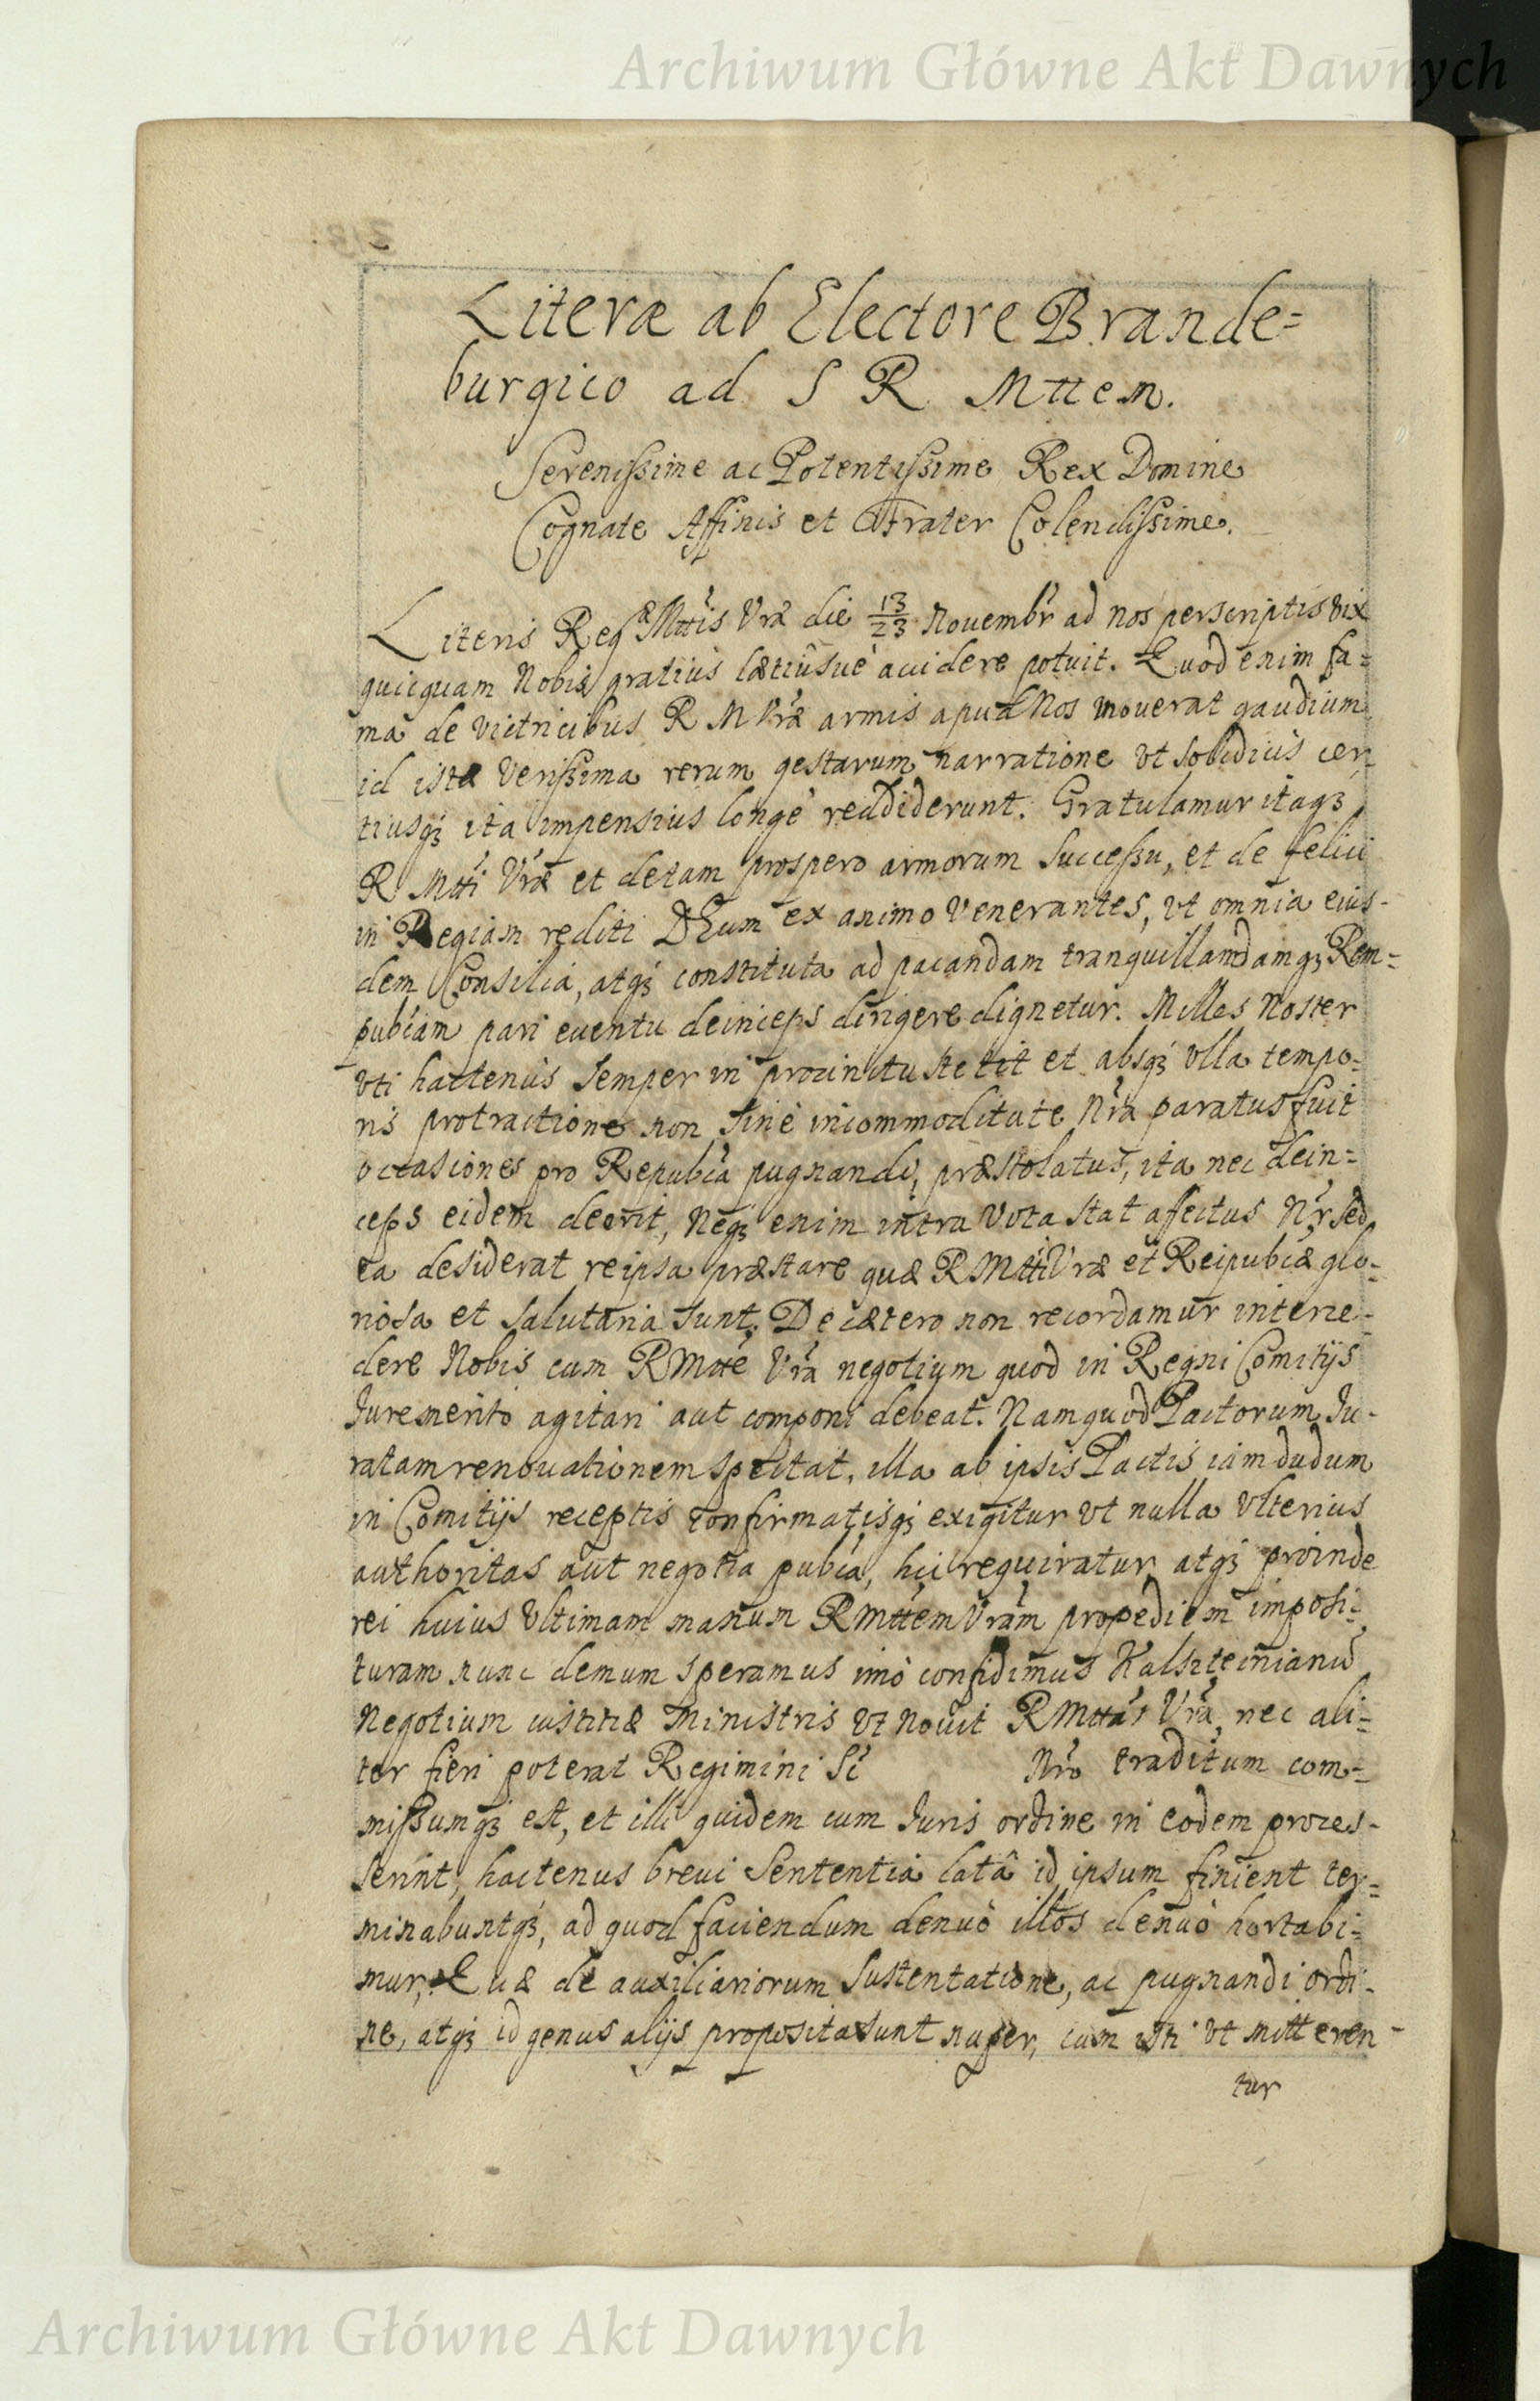 Archiwum Główne Akt Dawnych
Literæ ab Electore Brande=
burgico ad S R Mttem.
Serenissime ac Potentissime Rex Domine
Cognate Affinis et Frater Colendissime.
Literis Regæ Mttis Vræ die 13/23 Novembr ad nos perscriptis vix
quicquam Nobis gratius lætiusve accidere potuit. Quod enim fa=
ma de victricibus R M Vræ armis apud Nos moverat gaudium
id istæ verissima rerum gestarum narratione vt solidius cer
tiusq3 ita impensius longè reddiderunt. Gratulamur itaq3
R Mtti Vræ et de tam prospero armorum successu, et de felici
in Regiam reditu DEum ex animo venerantes, vt omnia eius-
dem Consilia, atq3 constituta ad pacandam tranquillandamq3 Rem=
pubcam pari eventu deinceps dirigere dignetur. Milles Noster
vti hactenus semper in procinctu stetit et absq3 vlla tempo=
ris protractione non sine incommoditate Nra paratus fuit
occasiones pro Repubca pugnandi, præstolatus, ita nec dein=
ceps eidem deerit, Neq3 enim intra vota stat afectus Nr, sed
ea desiderat reipsa præstare quæ R Mtti Vræ et Reipubcæ glo=
riosa et salutaria sunt. De cætero non recordamur interce=
dere Nobis cum R Mtte Vra negotium quod in Regni Comitijs
Jure merito agitari aut componi debeat. Nam quod Pactorum Ju-
ratam renovationem spectat, illa ab ipsis Pactis iam dudum
in Comitijs receptis confirmatisq3 exigitur vt nulla vlterius
authoritas aut negotia pubca, hic requiratur atq3 proinde
rei huius vltimam manum R Mttem Vram propediem imposi=
turam nunc demum speramus imò confidimus Kalsteinianū
Negotium iustitiæ Ministris vt novit R Mttas Vra, nec ali=
ter fieri poterat Regimini Sc Nro traditum com=
missumq3 est, et illi quidem cum Juris ordine in eodem proces-
serint, hactenus brevi Sententia latâ id ipsum finient ter=
minabuntq3, ad quod faciendum denuò illos denuò hortabi=
mur, Quæ de auxiliariorum Sustentatione, ac pugnandi ordi-
ne, atq3 id genus alijs proposita sunt nuper, cum isti vt mitteren-
tur
Archiwum Główne Akt Dawnych